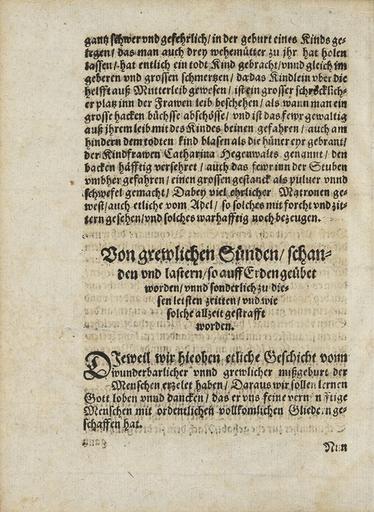 gantz schwer vnd gefehrlich / in der geburt eines Kinds ge-
legen / das man auch drey wehemütter zu jhr hat holen
lassen / hat entlich ein todt Kind gebracht / vnnd gleich im
geberen vnd grossen schmertzen / da das Kindlein vber die
helfft auß Mutterleib gewesen / ist ein grosser schröcklich-
er platz inn der Frawen leib beschehen / als wann man ein
grosse hacken büchsse abschösse / vnd ist das fewr gewaltig
auß jhrem leib mit des Kindes beinen gefahren / auch am
hindern dem todten kind blasen als die hüner eyr gebrant /
der Kindfrawen Catharina Hegenwalts genannt / den
backen häfftig versehret / auch das fewr inn der Stuben
vmbher gefahren / einen grossen gestanck als puluer vnnd
schwefel gemacht / Dabey viel ehrlicher Matronen ge-
west / auch etliche vom Adel / so solches mit forcht vnd zit-
tern gesehen / vnd solches warhafftig noch bezeugen.
Von grewlichen Sünden / schan-
den vnd lastern / so auff Erden geübet
worden / vnnd sonderlich zu die-
sen letsten zeitten / vnd wie
solche allzeit gestrafft
worden.
DJeweil wir hieoben etliche Geschicht vonn
wunderbarlicher vnnd grewlicher mißgeburt der
Menschen erzelet haben / Daraus wir sollen lernen
Gott loben vnnd dancken / das er vns feine vernünfftige
Menschen mit ordentlichen vollkomlichen Gliedern ge-
schaffen hat.
Nun